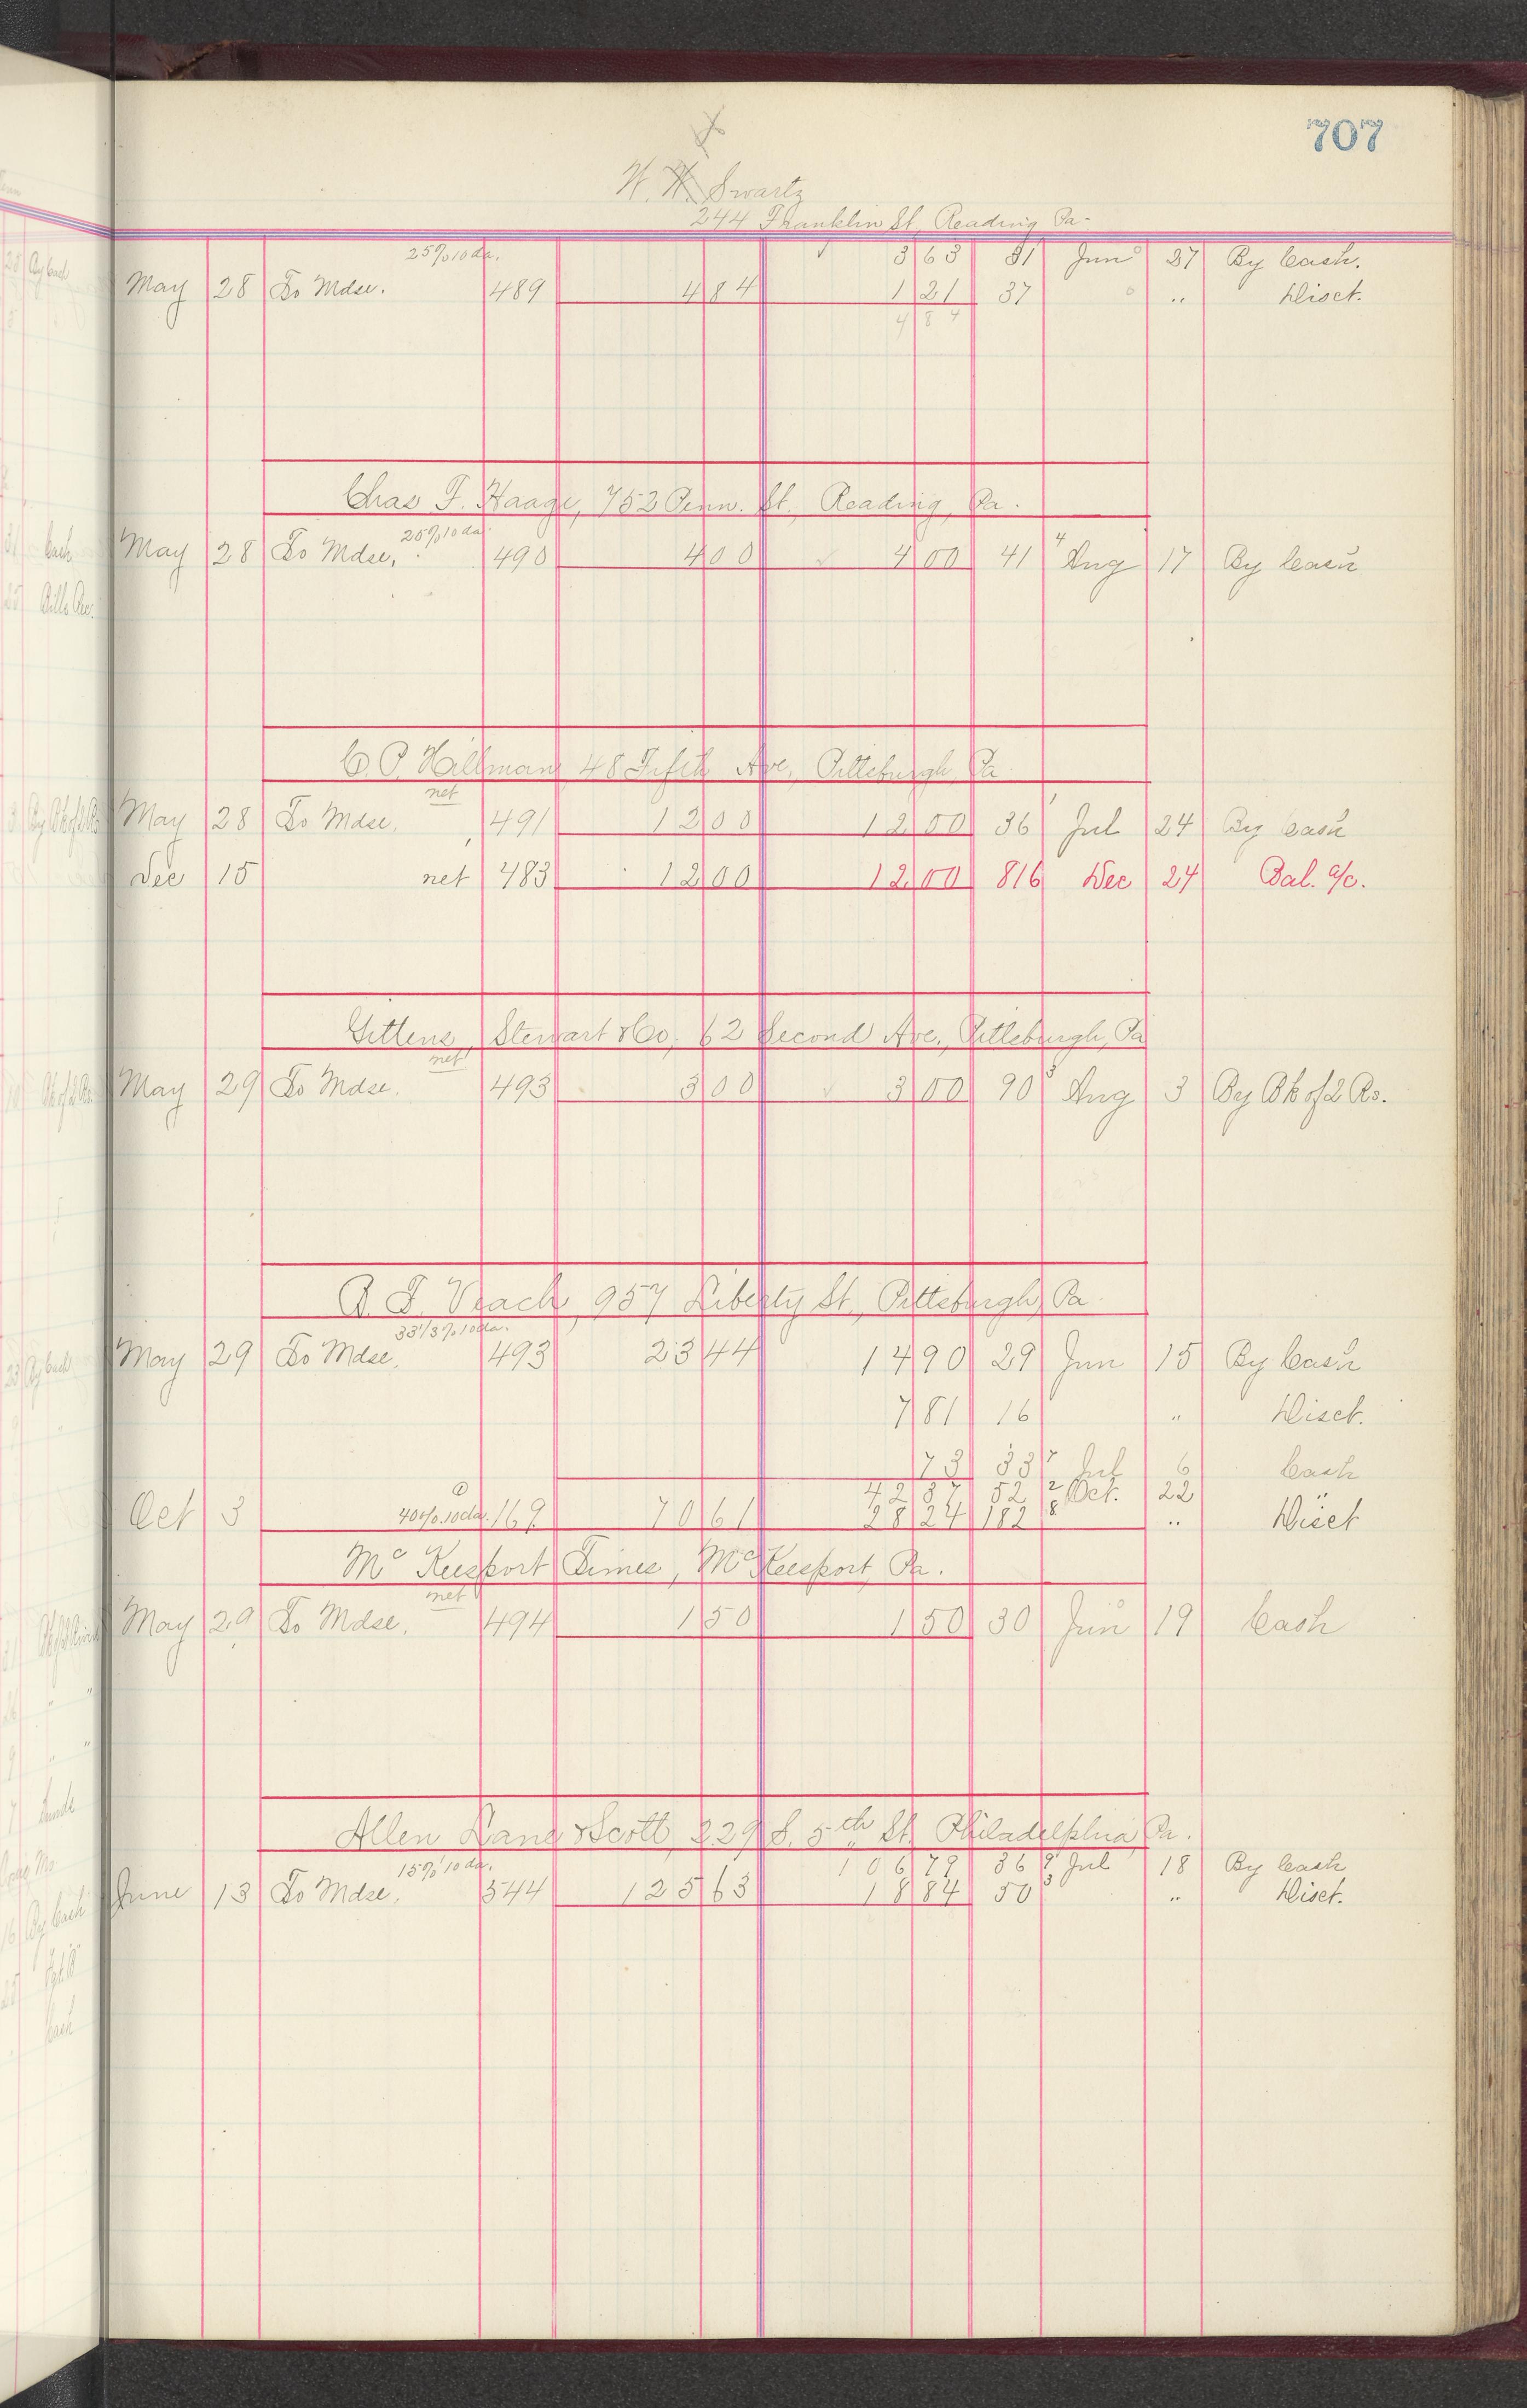 707
W. H. Swartz
244 Franklin St, Reading Pa-
25% 10 da. 3 63 31 Jun 27 By Cash.
May 28 To Mdse. 489 4 84 1 21 37 " Disct.
4 8 4
Chas F. Haage, 752 Penn. St., Reading, Pa.
25% 10 da.
May 28 To Mdse, 490 4 00 4 00 41 4 Aug 17 By Cash
C. P. Hallman, 48 Fifth Ave., Pittsburgh, Pa
net
May 28 To Mdse. 491 12 00 12 00 36 Jul 24 By Cash
Dec 15 net 483 12 00 12 00 816 Dec 24 Bal. a/c.
Gittens, Stewart & Co, 62 Second Ave., Pittsburgh, Pa
net
May 29 To Mdse. 493 3 00 3 00 90 3 Aug 3 By Bk of 2 Rs.
Veach, 957 Liberty St., Pittsburgh, Pa.
33 1/3% 10 da.
May 29 To Mdse. 493 23 44 14 90 29 Jun 15 By Cash
7 81 16 " Disct.
73 33 7 Jul 6 Cash
42 37 52 2 Oct. 22 "
Oct 3 40% 10 da. 169 70 61 28 24 182 8 " Disct
Mc Keesport Times, Mc Keesport, Pa.
net
May 29 To Mdse. 494 1 50 1 50 30 Jun 19 Cash
Allen Lane & Scott, 229 S. 5th St. Philadelphia, Pa.
15% 10 da. 106 79 36 9 Jul 18 By Cash
June 13 To Mdse, 544 125 63 18 84 50 3 " Disct.